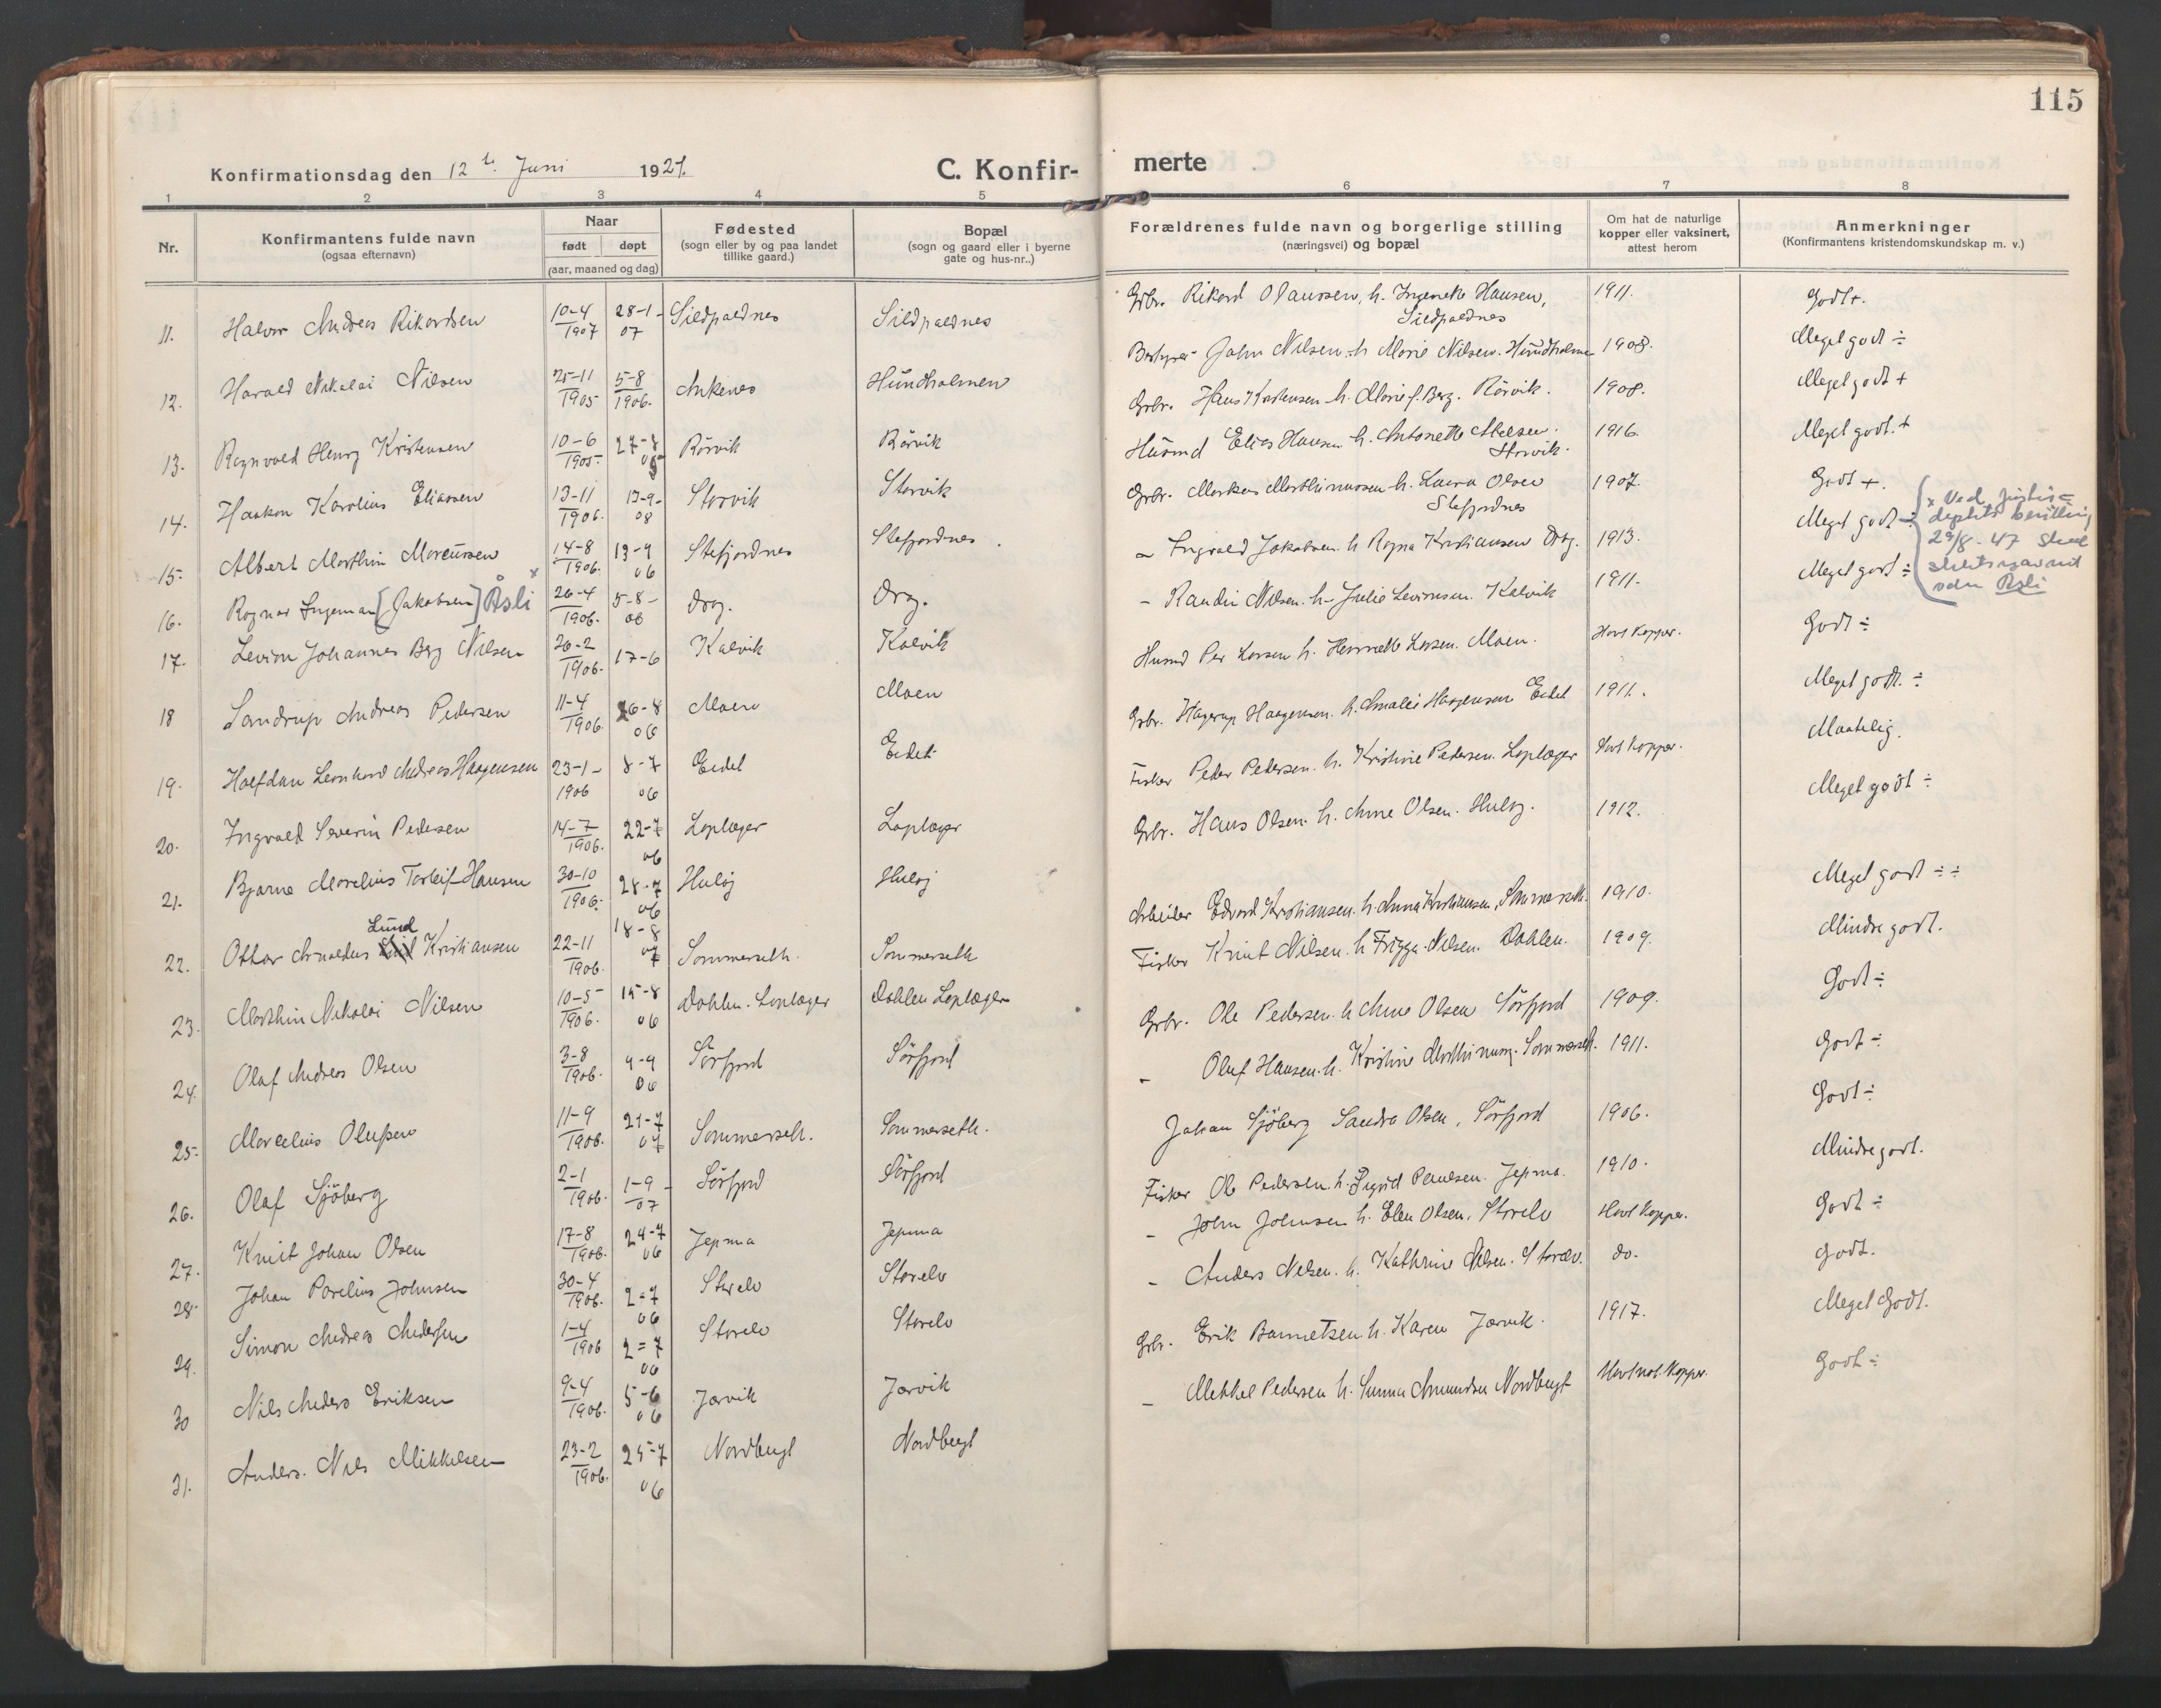 115
Konfirmationsdag den 12te Juni 1921.
C. Konfir-
merte
1 2 3 4 5 6 7 8
Nr.
Konfirmantens fulde navn
(ogsaa efternavn)
Naar
født døpt
(aar, maaned og dag)
Fødested
(sogn eller by og paa landet
tillike gaard.)
Bopæl
(sogn og gaard eller i byerne
gate og hus-nr..)
Forældrenes fulde navn og borgerlige stilling
(næringsvei) og bopæl
Om hat de naturlige
kopper eller vaksinert,
attest herom
Anmerkninger
(Konfirmantens kristendomskundskap m. v.)
11. Halvor Andreas Rikardsen 10-4/1907 28-1-07 Sildpaldnes Sildpaldnes Grbr. Rikard Olaussen, h. Ingeneth Hansen, Sildpaldnes 1911. Godt+.
12. Harald Nikolai Nilsen 25-11/1905 5-8/1906. Ankenes Hundholmen Bestyrer John Nilsen h. Marie Nilsen. Hundholmen 1908. Meget godt ÷
13. Ragnvald Henry Kristensen 10-6/1905- 27-8 05 Rörvik Rörvik Grbr. Hans Kristensen h. Marie f. Berg. Rörvik. 1908. Meget godt +
14. Haakon Karolius Eliassen 13-11/1906. 17-9-08 Storvik Storvik Husmd Elias Hansen h. Antonette Abelsen. Storvik. 1916. Meget godt. +
15. Albert Marthin Marcussen 14-8/1906. 13-9 06 Stefjordnes Stefjordnes. Grbr. Markus Marthinussen h. Laura Olsen Stefjordnes 1907. Godt +.
16. Ragnar Ingeman [Jakobsen] Åsli x 26-4/1906. 5-8-06 Drag. Drag. - Ingvald Jakobsen h. Ragna Kristiansen Drag. 1913. Meget godt ÷
x Ved Justis=
deptets bevilling
29/8-47 Skal
slektsnavnet
være Åsli
17. Levion Johannes Berg Nilsen 26-2/1906. 17-6 Kalvik Kalvik - Randin Nilsen. h. Julie Levionsen. Kalvik 1911. Meget godt ÷
18 Sandrup Andreas Pedersen 11-4/1906. 26-8 06 Moen Moen Husmd Per Larsen h. Hennette Larsen. Moen. Havt Kopper. Godt ÷
19. Halfdan Leonhard Andreas Haagensen 23-1-1906 8-7 06 Eidet Eidet Grbr. Hagerup Haagensen. h. Amalie Haagensen Eidet 1911. Meget godt. ÷
20. Ingvald Severin Pedersen 14-7/1906. 22-7 06 Loplæger Loplæger Fisker Peder Pedersen. h. Kristine Pedersen. Loplæger Havt kopper. Maatelig.
21. Bjarne Marelius Torleif Hansen 30-10/1906. 28-7 06 Huløj Huløj Grbr. Hans Olsen. h. Anne Olsen. Huløj. 1912. Meget godt ÷
22. Ottar Arnoldus Lund Kristiansen 22-11/1906. 18-8 07 Sommerseth. Sommerseth Arbeider Edvard Kristiansen. h. Anna Kristiansen, Sommerseth. 1910. Meget godt ÷ ÷
23. Marthin Nikolai Nilsen 10-5/1906. 15-8 06 Dahlen. Loplæger Dahlen Loplæger Fisker Knut Nilsen. h. Frigga Nilsen. Dahlen. 1909. Mindre godt.
24. Olaf Andreas Olsen 3-8/1906. 9-9 06 Sörfjord Sörfjord Grbr. Ole Pedersen. h Anne Olsen Sörfjord 1909. Godt ÷
25. Marcelius Olufsen 11-9/1906. 21-7 07 Sommerseth. Sommerseth. - Oluf Hansen. h. Kristine Marthinusg. Sommerseth. 1911. Godt ÷
26. Olaf Sjöberg 2-1/1906. 1-9-07 Sörfjord Sörfjord Johan Sjöberg Sandra Olsen, Sörfjord 1906. Godt ÷
27. Knut Johan Olsen 17-8/1906. 24-7 06 Jepma Jepma Fisker Ole Pedersen. h. Sigrid Paulsen. Jepma. 1910. Mindre godt.
28. Johan Parelius Johnsen 30-4/1906. 2=7 06 Storelv Storelv - John Johnsen h. Elen Olsen. Storelv Havt kopper. Godt ÷
29. Simon Andreas Andersen 1-4/1906 2=7 06 Storelv Storelv - Anders Nilsen. h. Kathrine Nilsen. Storelv. do. Godt.
30 Nils Anders Eriksen 9-4/1906. 5-6 06 Jarvik Jarvik Grbr. Erik Barnetsen h. Karen Jarvik. 1917. Meget Godt.
31. Anders. Nils Mikkelsen 23-2/1906. 25-7 06 Nordbugt Nordbugt - Mekkel Pedersen h. Sunna Amundsen Nordbugt Havt nat. kopper. Godt ÷